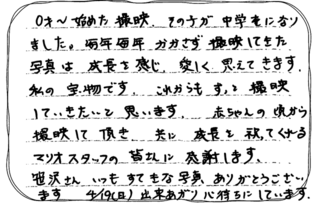 0才〜始めた撮映、その子が中学生になり
ました。毎年毎年かかさず撮映してきた
写真は成長を感じ、愛しく思えてきます。
私の宝物です。これからもずっと撮映
していきたいと思います。赤ちゃんの頃から
撮映して頂き共に成長を祝てくれる
マリオスタッフの皆さんに感謝します。
笹沢さんいつもすてきな写真ありがとうござい
ます 4/19(日)出来あがり心待ちにしています。